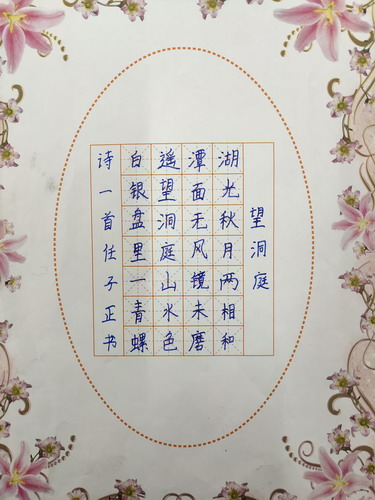 望洞庭
湖光秋月两相和
潭面无风镜未磨
遥望洞庭山水色
白银盘里一青螺
诗一首任子正书